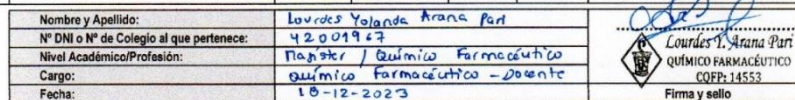 Nombre y Apellido: Lourdes Yolanda Arana Pari
Nº DNI o Nº de Colegio al que pertenece: 42001967
Nivel Académico/Profesión: Magíster / Químico Farmacéutico
Cargo: Químico Farmacéutico - Docente
Fecha: 18-12-2023
Lourdes Y. Arana Pari
QUÍMICO FARMACÉUTICO
CQFP: 14553
Firma y sello